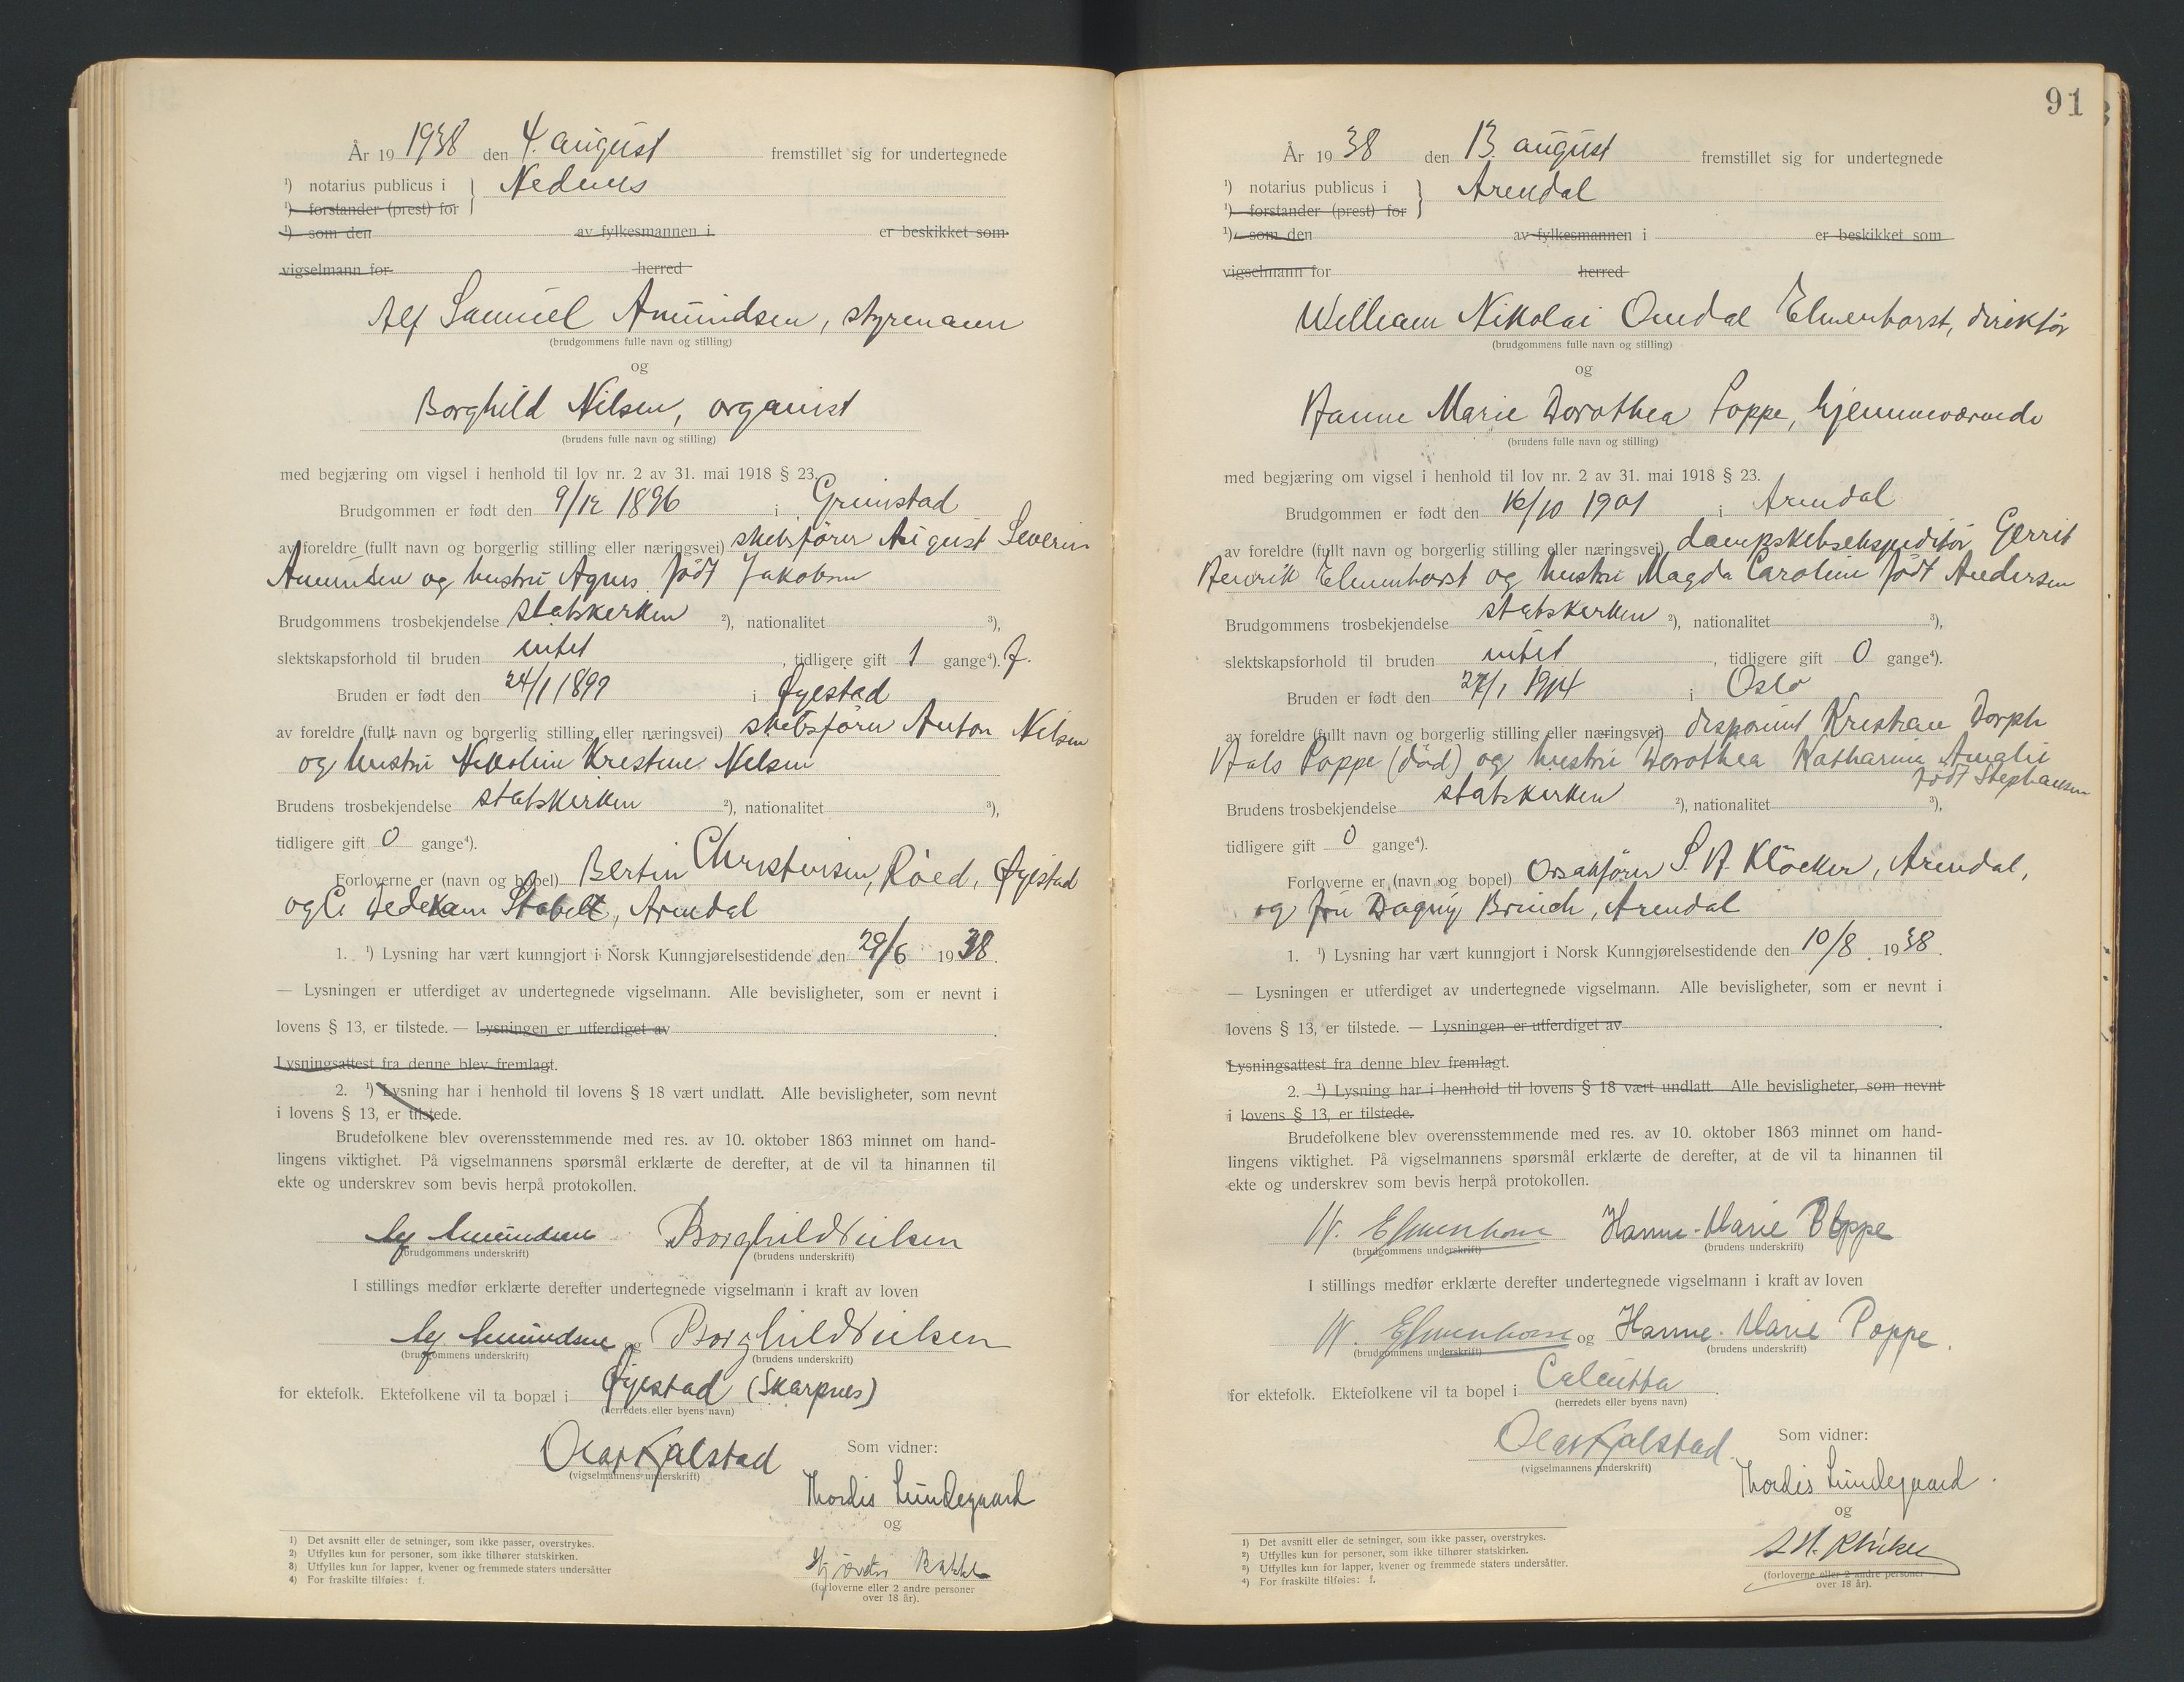 År 19 1938 den 4. august fremstillet sig for undertegnede
1) notarius publicus i } Nedenes
1) forstander (prest) for
1) som den av fylkesmannen i er beskikket som
vigselmann for herred
Alf Samuel Amundsen, styrmann
(brudgommens fulle navn og stilling)
og
Borghild Nilsen, organist
(brudens fulle navn og stilling)
med begjæring om vigsel i henhold til lov nr. 2 av 31. mai 1918 § 23.
Brudgommen er født den 9/12 1896 i Grimstad
av foreldre (fullt navn og borgerlig stilling eller næringsvei) skibsfører August Severin
Amundsen og hustru Agnes født Jakobsen
Brudgommens trosbekjendelse statskirken 2), nationalitet 3),
slektskapsforhold til bruden intet, tidligere gift 1 gange4). f.
Bruden er født den 24/1 1899 i Øyestad
av foreldre (fullt navn og borgerlig stilling eller næringsvei) skibsfører Anton Nilsen
og hustru Nikoline Kristine Nilsen
Brudens trosbekjendelse statskirken 2), nationalitet 3),
tidligere gift 0 gange4).
Forloverne er (navn og bopel) Bertin Christensen, Røed, Øyestad
og C. Dedekam Stabell, Arendal
1. 1) Lysning har vært kunngjort i Norsk Kunngjørelsestidende den 29/6 1938.
— Lysningen er utferdiget av undertegnede vigselmann. Alle bevisligheter, som er nevnt i
lovens § 13, er tilstede. — Lysningen er utferdiget av .
Lysningsattest fra denne blev fremlagt.
2. 1) Lysning har i henhold til lovens § 18 vært undlatt. Alle bevisligheter, som nevnt
i lovens § 13, er tilstede.
Brudefolkene blev overensstemmende med res. av 10. oktober 1863 minnet om hand-
lingens viktighet. På vigselmannens spørsmål erklærte de derefter, at de vil ta hinannen til
ekte og underskrev som bevis herpå protokollen.
Amundsen Borghild Nilsen
(brudgommens underskrift) (brudens underskrift)
I stillings medfør erklærte derefter undertegnede vigselmann i kraft av loven
Amundsen og Borghild Nilsen
(brudgommens underskrift) (brudens underskrift)
for ektefolk. Ektefolkene vil ta bopæl i Øyestad (Skarpnes)
(herredets eller byens navn)
Olaf Kjalstad Som vidner:
(vigselmannens underskrift)
Thordis Lundegaard
og
(forloverne eller 2 andre personer
over 18 år).
1) Det avsnitt eller de setninger, som ikke passer, overstrykes.
2) Utfylles kun for personer, som ikke tilhører statskirken.
3) Utfylles kun for lapper, kvener og fremmede staters undersåtter
4) For fraskilte tilføies: f.
91
År 19 38 den 13. august fremstillet sig for undertegnede
1) notarius publicus i } Arendal
1) forstander (prest) for
1) som den av fylkesmannen i er beskikket som
vigselmann for herred
William Nikolai Omdal Elmenhorst, direktør
(brudgommens fulle navn og stilling)
og
Hanne Marie Dorothea Poppe, hjemmeværende
(brudens fulle navn og stilling)
med begjæring om vigsel i henhold til lov nr. 2 av 31. mai 1918 § 23.
Brudgommen er født den 16/10 1901 i Arendal
av foreldre (fullt navn og borgerlig stilling eller næringsvei) dampskibsekspeditør Gerrit
Henrik Elmenhorst og hustru Magda Caroline født Andersen
Brudgommens trosbekjendelse statskirken 2), nationalitet 3),
slektskapsforhold til bruden intet, tidligere gift 0 gange4).
Bruden er født den 27/1 1914 i Oslo
av foreldre (fullt navn og borgerlig stilling eller næringsvei) disponent Kristian Dorph
Hals Poppe (død) og hustru Dorothea Katharina Amalie
født Stephansen
Brudens trosbekjendelse statskirken 2), nationalitet 3),
tidligere gift 0 gange4).
Forloverne er (navn og bopel) Orsakfører S. H. Kløcker, Arendal,
og fru Dagny Brinch, Arendal
1. 1) Lysning har vært kunngjort i Norsk Kunngjørelsestidende den 10/8. 1938.
— Lysningen er utferdiget av undertegnede vigselmann. Alle bevisligheter, som er nevnt i
lovens § 13, er tilstede. — Lysningen er utferdiget av .
Lysningsattest fra denne blev fremlagt.
2. 1) Lysning har i henhold til lovens § 18 vært undlatt. Alle bevisligheter, som nevnt
i lovens § 13, er tilstede.
Brudefolkene blev overensstemmende med res. av 10. oktober 1863 minnet om hand-
lingens viktighet. På vigselmannens spørsmål erklærte de derefter, at de vil ta hinannen til
ekte og underskrev som bevis herpå protokollen.
W. Elmenhorst Hanne-Marie Poppe
(brudgommens underskrift) (brudens underskrift)
I stillings medfør erklærte derefter undertegnede vigselmann i kraft av loven
W. Elmenhorst og Hanne-Marie Poppe.
(brudgommens underskrift) (brudens underskrift)
for ektefolk. Ektefolkene vil ta bopel i Calcutta.
(herredets eller byens navn)
Olaf Kjalstad Som vidner:
(vigselmannens underskrift)
Thordis Lundegaard.
og
S. H. Kløcker
(forloverne eller 2 andre personer
over 18 år).
1) Det avsnitt eller de setninger, som ikke passer, overstrykes.
2) Utfylles kun for personer, som ikke tilhører statskirken.
3) Utfylles kun for lapper, kvener og fremmede staters undersåtter.
4) For fraskilte tilføies: f.